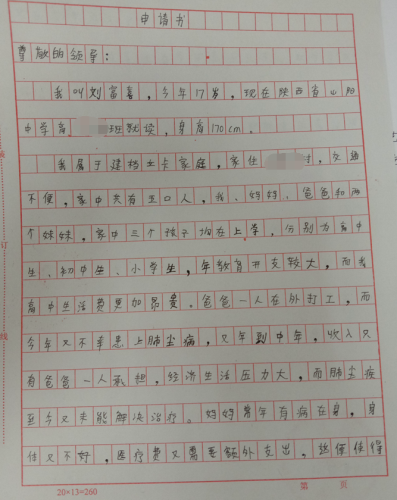 申请书
尊敬的领导：
我叫刘富喜，今年17岁，现在陕西省山阳
中学高 班就读，身高170cm。
我属于建档立卡家庭，家住 村，交通
不便，家中共有五口人，我、妈妈、爸爸和两
个妹妹，家中三个孩子均在上学，分别为高中
生、初中生、小学生，年教育开支较大，而我
高中生活费更加昂贵。爸爸一人在外打工，而
今年又不幸患上肺尘病，又年到中年，收入只
有爸爸一人承担，经济生活压力大，而肺尘疾
至今又未能解决治疗。妈妈常年有病在身，身
体又不好，医疗费又需要额外支出，这便使得
20×13=260
第 页